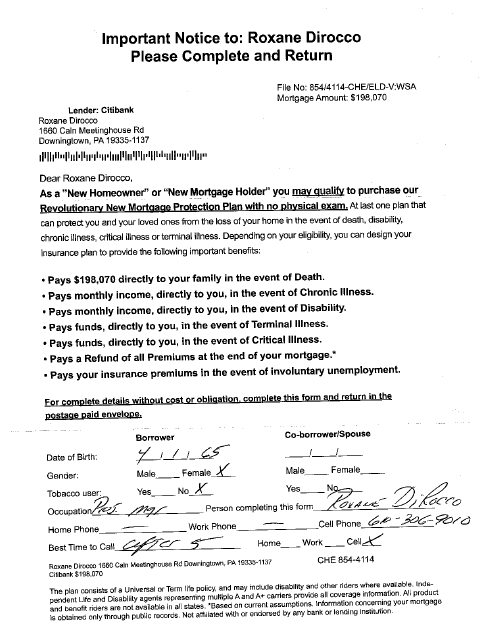 Important Notice to: Roxane Dirocco
Please Complete and Return
File No: 854/4114-CHE/ELD-V:WSA
Mortgage Amount: $198,070
Lender: Citibank
Roxane Dirocco
1660 Caln Meetinghouse Rd
Downingtown, PA 19335-1137
Dear Roxane Dirocco,
As a "New Homeowner" or "New Mortgage Holder" you may qualify to purchase our
Revolutionary New Mortgage Protection Plan with no physical exam. At last one plan that
can protect you and your loved ones from the loss of your home in the event of death, disability,
chronic illness, critical illness or terminal illness. Depending on your eligibility, you can design your
insurance plan to provide the following important benefits:
• Pays $198,070 directly to your family in the event of Death.
• Pays monthly income, directly to you, in the event of Chronic Illness.
• Pays monthly income, directly to you, in the event of Disability.
• Pays funds, directly to you, in the event of Terminal Illness.
• Pays funds, directly to you, in the event of Critical Illness.
• Pays a Refund of all Premiums at the end of your mortgage.*
• Pays your insurance premiums in the event of involuntary unemployment.
For complete details without cost or obligation, complete this form and return in the
postage paid envelope.
Borrower Co-borrower/Spouse
Date of Birth: 4 / 1 / 65 __/__/__
Gender: Male____ Female X Male____ Female____
Tobacco user: Yes____ No X Yes____ No____
Occupation mgr Person completing this form Roxane DiRocco
Home Phone — Work Phone — Cell Phone 610-306-9010
Best Time to Call after 5 Home____ Work____ Cell X
Roxane Dirocco 1660 Caln Meetinghouse Rd Downingtown, PA 19335-1137 CHE 854-4114
Citibank $198,070
The plan consists of a Universal or Term life policy, and may include disability and other riders where available. Inde-
pendent Life and Disability agents representing multiple A and A+ carriers provide all coverage information. All product
and benefit riders are not available in all states. *Based on current assumptions. Information concerning your mortgage
is obtained only through public records. Not affiliated with or endorsed by any bank or lending institution.